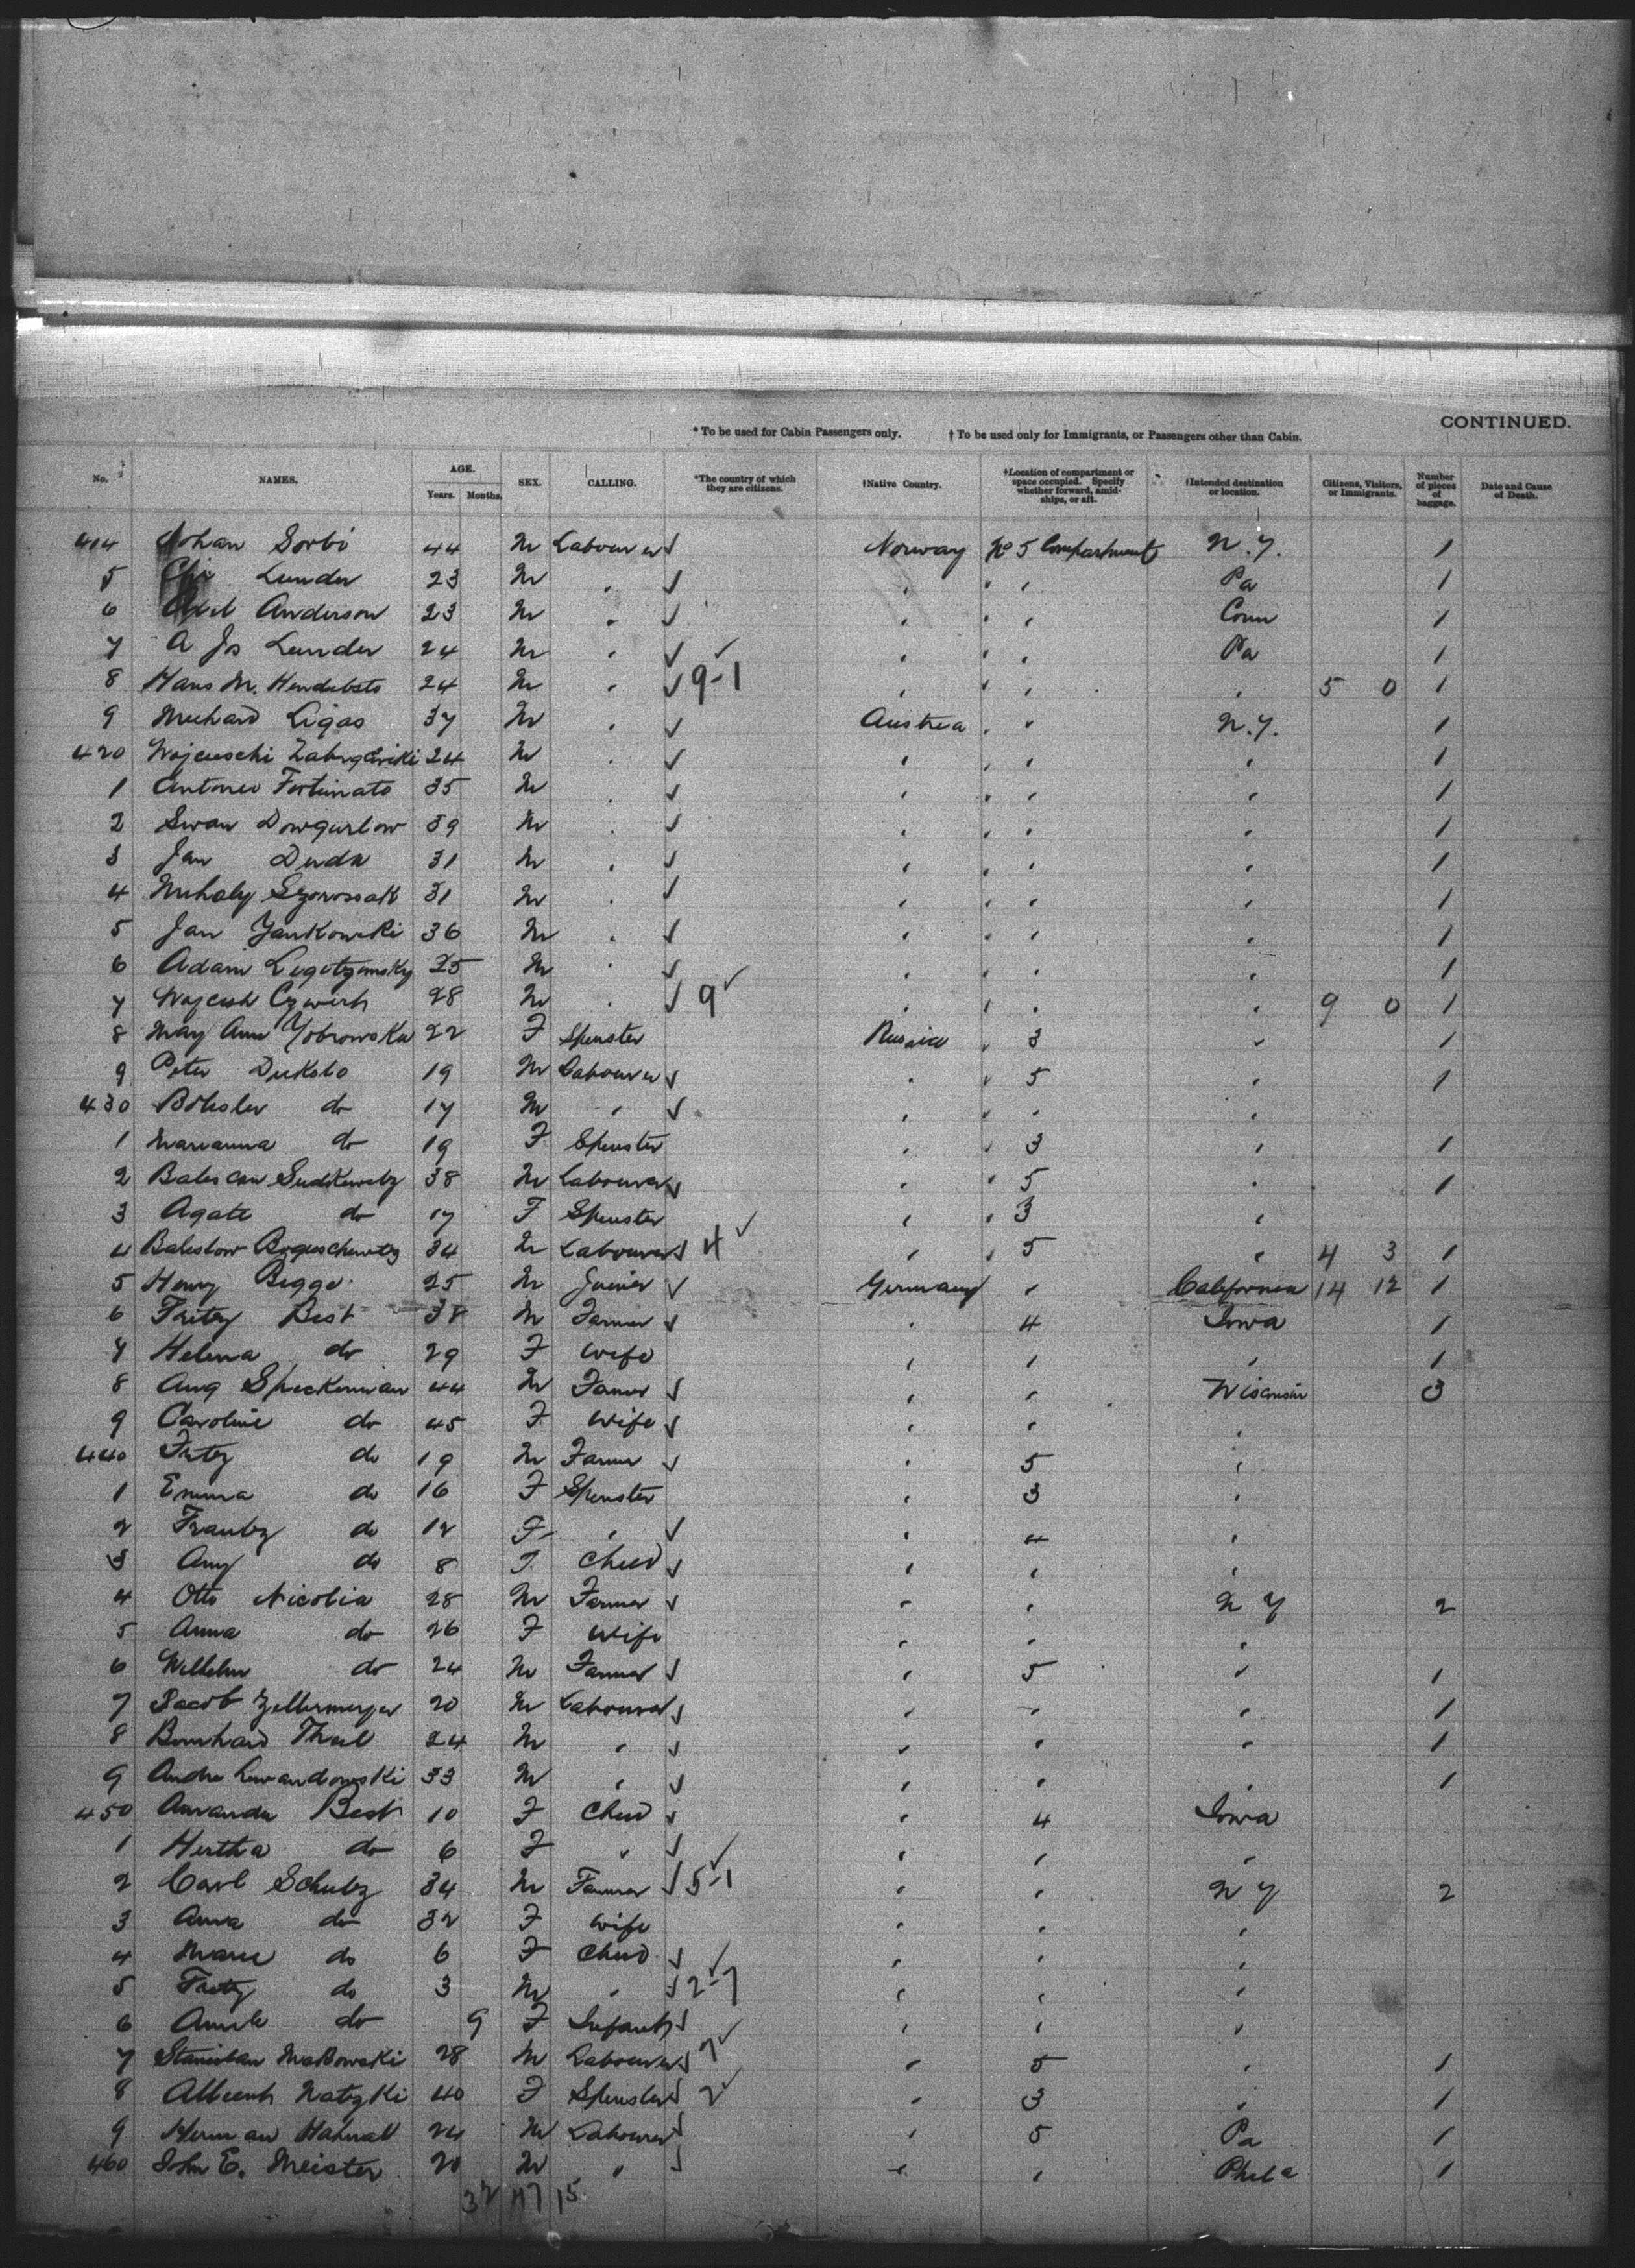 CONTINUED.
* To be used for Cabin Passengers only. † To be used only for Immigrants, or Passengers other than Cabin.
No. NAMES. AGE. Years. Months. SEX. CALLING. *The country of which they are citizens. †Native Country. †Location of compartment or space occupied. Specify whether forward, amidships, or aft. †Intended destination or location. Citizens, Visitors, or Immigrants. Number of pieces of baggage. Date and Cause of Death.
414 Johan Sorbi 44 M Labourer Norway No 5 Compartment N.Y. 1
5 Lunder 23 M " " " Pa 1
6 Axel Anderson 23 M " " " " Conn 1
7 A Js Lunder 24 M " " " " Pa 1
8 Hans M. 24 M " 9-1 " " " " 5 0 1
9 Ligas 37 M " Austria " " N.Y. 1
420 24 M " " " " " 1
1 Antonio Fortunato 35 M " " " " " 1
2 Dowgurlow 39 M " " " " " 1
3 Jan Duda 31 M " " " " " 1
4 Mihaly 31 M " " " " " 1
5 Jan Yankowski 36 M " " " " " 1
6 Adam 25 M " " " " " 1
7 28 M " 9 " " " " 9 0 1
8 May Anna 22 F Spinster Russia " 3 " 1
9 Peter Duksto 19 M Labourer " " 5 " 1
430 do 17 M " " " " "
1 Marianna do 19 F Spinster " " 3 " 1
2 38 M Labourer " " 5 " 1
3 Agate do 17 F Spinster " " 3 "
4 34 M Labourer 4 " " 5 " 4 3 1
5 Henry 25 M Joiner Germany " California 14 12 1
6 Fritz Best 38 M Farmer " 4 Iowa 1
7 Helena do 29 F Wife " " " 1
8 Aug Speckmann 44 M Farmer " " Wisconsin 3
9 Caroline do 45 F Wife " " "
440 Fritz do 19 M Farmer " 5 "
1 Emma do 16 F Spinster " 3 "
2 Frantz do 12 F " " 4 "
3 Any do 8 F Child " " "
4 Otto Nicolia 28 M Farmer " " N Y 2
5 Anna do 26 F Wife " " "
6 Wilhelm do 24 M Farmer " 5 " 1
7 Jacob Zellermeyer 20 M Labourer " " " 1
8 Bernhard 24 M " " " " 1
9 Andre Lewandowski 33 M " " " " 1
450 Amanda Best 10 F Child " 4 Iowa
1 Hertha do 6 F " " " "
2 Carl Schultz 34 M Farmer 5-1 " " N Y 2
3 Anna do 32 F Wife " " "
4 Marie do 6 F Child " " "
5 Fritz do 3 M " 2-7 " " "
6 do 9 F Infant " " "
7 Stanislaw Makowski 28 M Labourer 7 " 5 " 1
8 Natzki 40 F Spinster 2 " 3 " 1
9 Herman 24 M Labourer " 5 Pa 1
460 John E. Meister 20 M " " " Phila 1
32 117 15